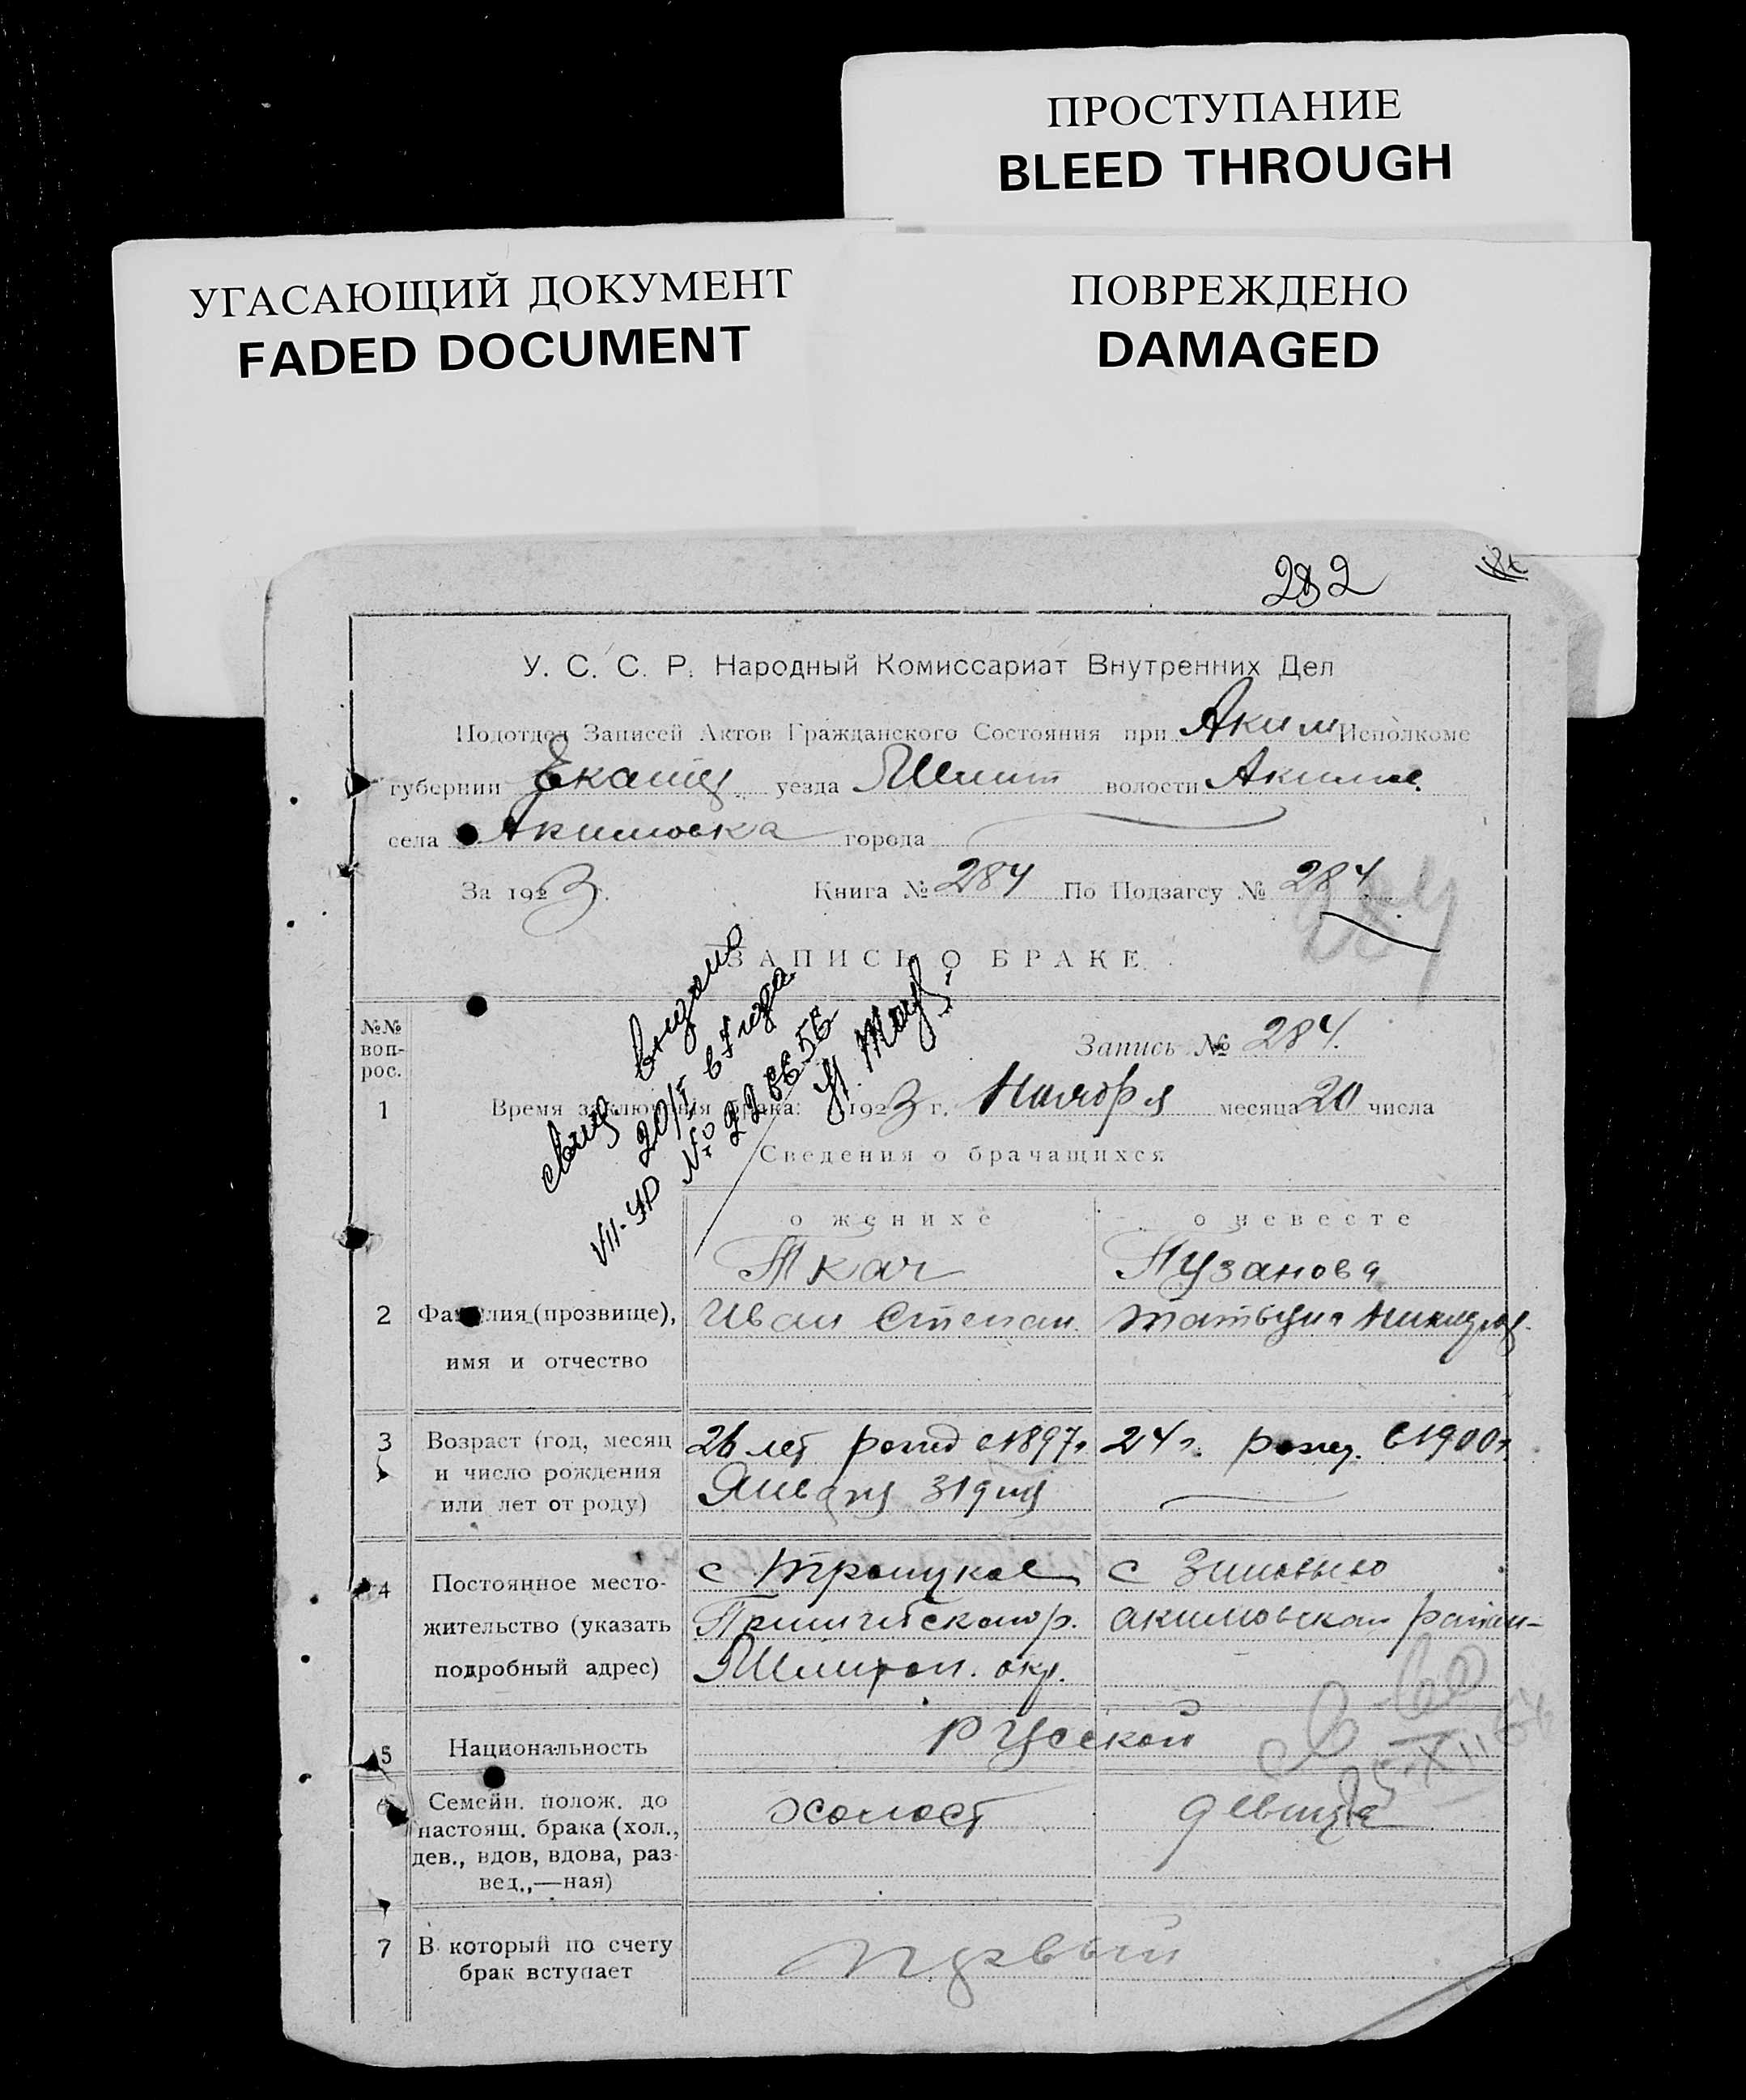 ПРОСТУПАНИЕ
BLEED THROUGH
УГАСАЮЩИЙ ДОКУМЕНТ
FADED DOCUMENT
ПОВРЕЖДЕНО
DAMAGED
282
У. С. С. Р. Народный Комиссариат Внутренних Дел
Подотдел Записей Актов Гражданского Состояния при Аким Исполкоме
губернии Екат уезда Мелит волости Акимов.
села Акимовка города
За 1923 г. Книга № 284 По Подзагсу № 284
284
ЗАПИСЬ О БРАКЕ.
№№ воп-рос.
Запись № 284.
1 Время заключения брака: 1923 г. Ноября месяца 20 числа
VII-ЯР № 226656
Сведения о брачащихся
о женихе о невесте
Ткач Пузанова
2 Фамилия (прозвище), Иван Степан. Татьяна
имя и отчество
3 Возраст (год, месяц 26 лет рожд в 1897г. 24 г. рожд. в 1900г.
и число рождения Января 31 дня
или лет от роду)
4 Постоянное место- с Троицкое с
жительство (указать Пришибского р. Акимовского район-
подробный адрес) Мелитоп. окр.
5 Национальность Русской
6 Семейн. полож. до холост девица
настоящ. брака (хол.,
дев., вдов, вдова, раз-
вед.,—ная)
7 В который по счету первый
брак вступает